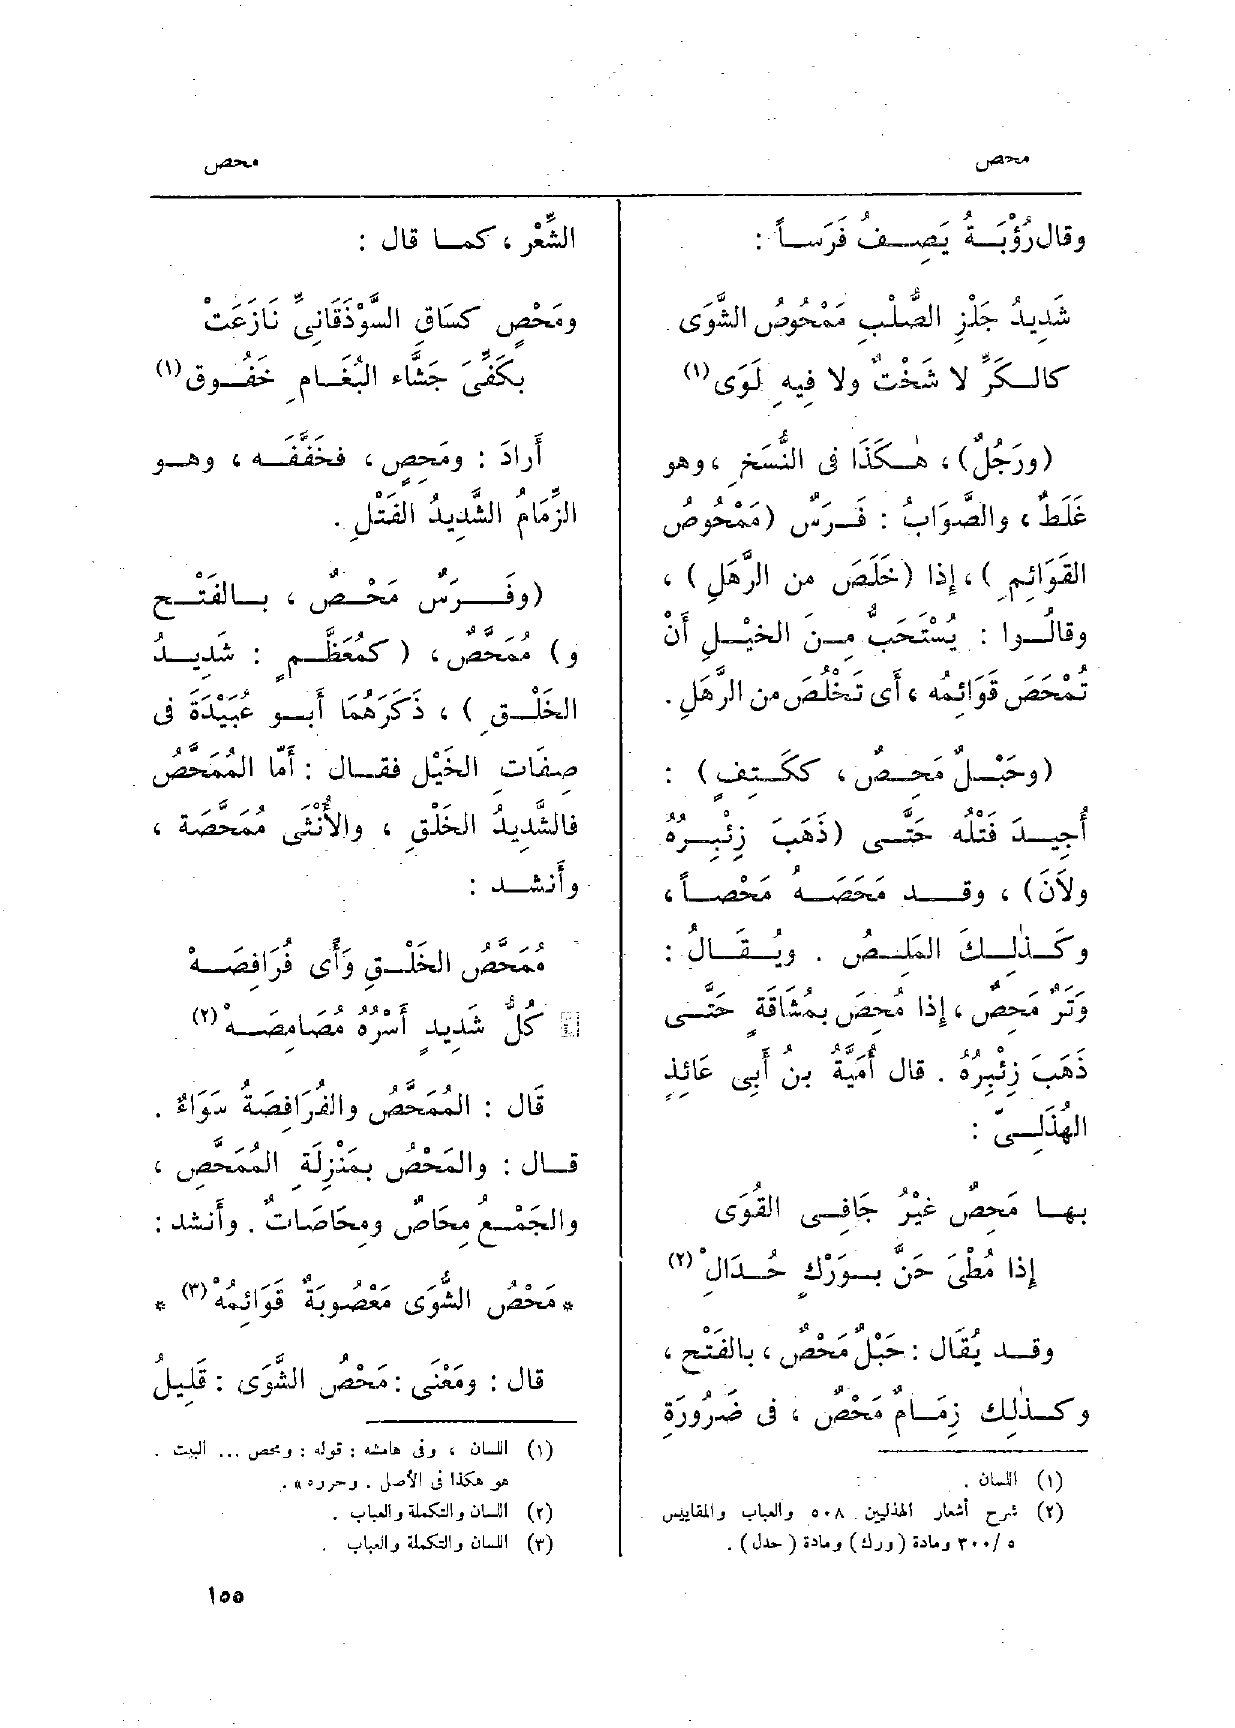 محص
محص
وقال رُؤْبَةُ يَصِفُ فَرَساً :
شَدِيدُ جَلْزِ الصُّلْبِ مَمْحُوصُ الشَّوَى
كالكَرِّ لا شَخْتٌ ولا فِيهِ لَوَى (١)
(ورَجُلٌ) ، هٰكَذَا فى النُّسَخِ ، وهو
غَلَطٌ ، والصَّوَابُ : فَرَسٌ (مَمْحُوصُ
القَوَائِمِ) ، إِذا (خَلَصَ من الرَّهَلِ) ،
وقالُوا : يُسْتَحَبُّ مِنَ الخَيْلِ أَنْ
تُمْحَصَ قَوَائِمُه ، أَى تَخْلُصَ من الرَّهَلِ .
(وحَبْلٌ مَحِصٌ ، ككَتِفٍ) :
أُجِيدَ فَتْلُه حَتَّى (ذَهَبَ زِئْبِرُهُ
ولَانَ) ، وقد مَحَصَهُ مَحْصاً ،
وكَذٰلِكَ المَلِصُ . ويُقَالُ :
وَتَرٌ مَحِصٌ ، إِذا مُحِصَ بمُشَاقَةٍ حَتَّى
ذَهَبَ زِئْبِرُهُ . قال أُمَيَّةُ بنُ أَبِى عَائِذٍ
الهُذَلِىّ :
بها مَحِصٌ غَيْرُ جَافِى القُوَى
إِذا مُطْىَ حَنَّ بوَرْكٍ حُدَالِ (٢)
وقد يُقَال : حَبْلٌ مَحْصٌ ، بالفَتْحِ ،
وكذٰلِك زِمَامٌ مَحْصٌ ، فى ضَرُورَةِ
(١) اللسان .
(٢) شرح أشعار الهذليين ٥٠٨ والعباب والمقاييس
٥ /٣٠٠ ومادة (ورك) ومادة (حدل) .
الشِّعْر ، كما قال :
ومَحْصٍ كسَاقِ السَّوْذَقَانِىِّ نَازَعَتْ
بكَفِّىَ جَشَّاء البُغَامِ خَفُوق (١)
أَرادَ : ومَحِصٍ ، فخَفَّفَه ، وهو
الزِّمَامُ الشَّدِيدُ الفَتْلِ .
(وفَرَسٌ مَحْصٌ ، بالفَتْح
و) مُمَحَّصٌ ، (كمُعَظَّمٍ : شَدِيدُ
الخَلْقِ) ، ذَكَرَهُمَا أَبو عُبَيْدَةَ فى
صِفَاتِ الخَيْلِ فقال : أَمّا المُمَحَّصُ
فالشَّدِيدُ الخَلْقِ ، والأُنْثَى مُمَحَّصَة ،
وأَنشد :
مُمَحَّصُ الخَلْقِ وَأًى فُرَافِصَهْ
كُلُّ شَدِيدٍ أَسْرُهُ مُصَامِصَهْ (٢)
قَال : المُمَحَّصُ والفُرَافِصَةُ سَوَاءٌ .
قال : والمَحْصُ بمَنْزِلَةِ المُمَحَّصِ ،
والجَمْعُ مِحَاصٌ ومِحَاصَاتٌ . وأَنشد :
* مَحْصُ الشَّوَى مَعْصُوبَةٌ قَوَائِمُهْ (٣) *
قال : ومَعْنَى : مَحْصُ الشَّوَى : قَلِيلُ
(١) اللسان ، وفى هامشه : قوله : ومحص ... البيت .
هو هكذا فى الأصل . وحرره » .
(٢) اللسان والتكملة والعباب .
(٣) اللسان والتكملة والعباب .
١٥٥